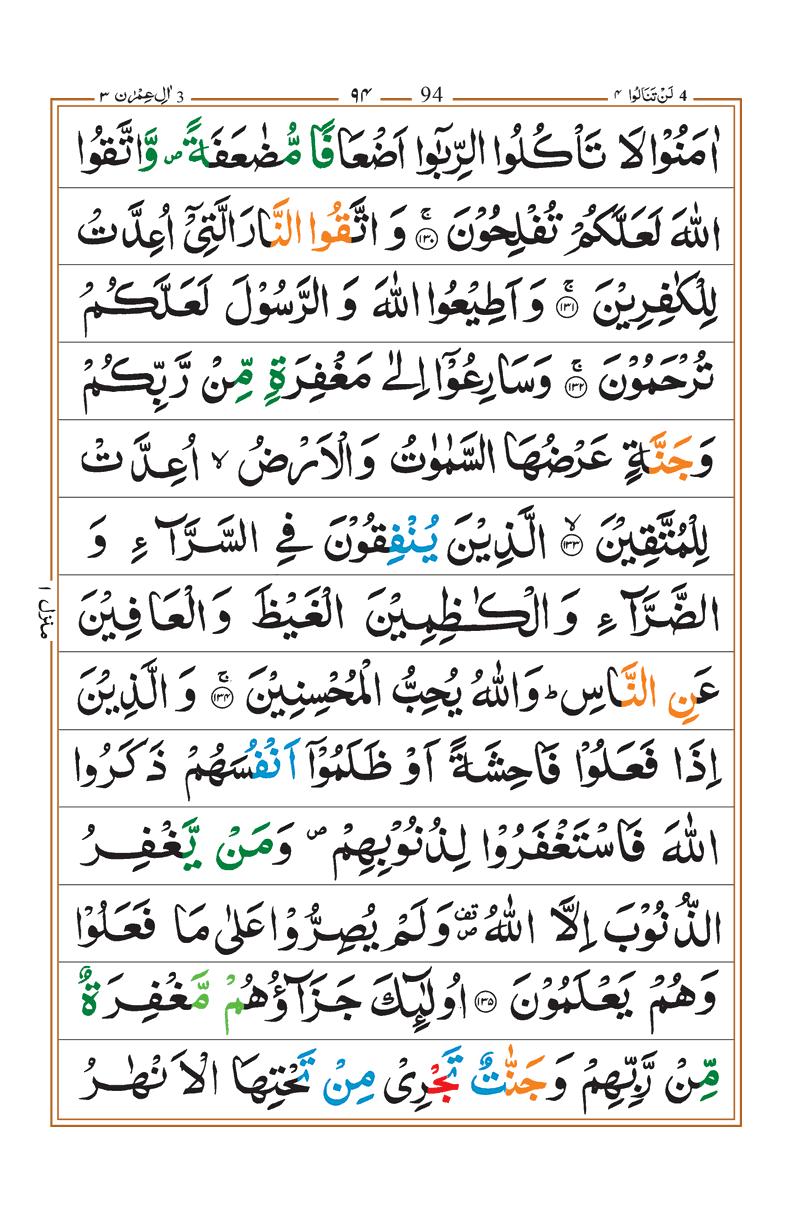 4 لَنْ تَنَالُوا ۴ 94 ۹۴ 3 اٰلِ عِمْرٰن ۳
اٰمَنُوْا لَا تَاْكُلُوا الرِّبٰۤوا اَضْعَافًا مُّضٰعَفَةً ۪ وَّاتَّقُوا
اللّٰهَ لَعَلَّكُمْ تُفْلِحُوْنَ ۚ ﴿۱۳۰﴾ وَ اتَّقُوا النَّارَ الَّتِیْۤ اُعِدَّتْ
لِلْكٰفِرِیْنَ ۚ ﴿۱۳۱﴾ وَ اَطِیْعُوا اللّٰهَ وَ الرَّسُوْلَ لَعَلَّكُمْ
تُرْحَمُوْنَ ۚ ﴿۱۳۲﴾ وَسَارِعُوْۤا اِلٰی مَغْفِرَةٍ مِّنْ رَّبِّكُمْ
وَجَنَّةٍ عَرْضُهَا السَّمٰوٰتُ وَالْاَرْضُ ۙ اُعِدَّتْ
لِلْمُتَّقِیْنَ ۙ ﴿۱۳۳﴾ الَّذِیْنَ یُنْفِقُوْنَ فِی السَّرَّآءِ وَ
الضَّرَّآءِ وَالْكٰظِمِیْنَ الْغَیْظَ وَالْعَافِیْنَ
عَنِ النَّاسِ ؕ وَاللّٰهُ یُحِبُّ الْمُحْسِنِیْنَ ۚ ﴿۱۳۴﴾ وَ الَّذِیْنَ
اِذَا فَعَلُوْا فَاحِشَةً اَوْ ظَلَمُوْۤا اَنْفُسَهُمْ ذَكَرُوا
اللّٰهَ فَاسْتَغْفَرُوْا لِذُنُوْبِهِمْ ۪ وَمَنْ یَّغْفِرُ
الذُّنُوْبَ اِلَّا اللّٰهُ ۪۫ وَلَمْ یُصِرُّوْا عَلٰی مَا فَعَلُوْا
وَهُمْ یَعْلَمُوْنَ ﴿۱۳۵﴾ اُولٰٓئِكَ جَزَآؤُهُمْ مَّغْفِرَةٌ
مِّنْ رَّبِّهِمْ وَجَنّٰتٌ تَجْرِیْ مِنْ تَحْتِهَا الْاَنْهٰرُ
منزل ۱